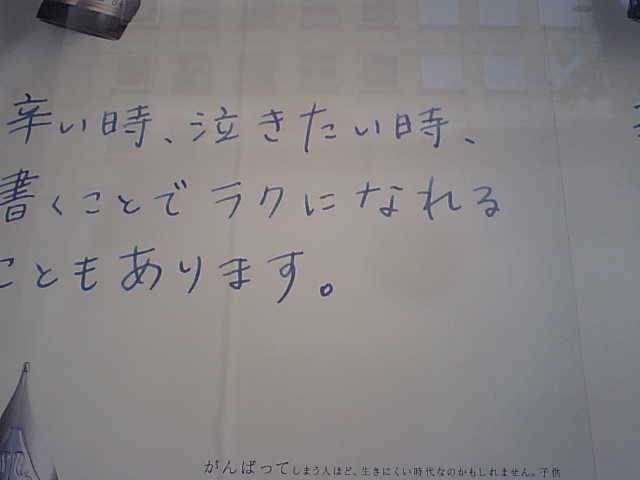 辛い時、泣きたい時、
書くことでラクになれる
こともあります。
がんばってしまう人ほど、生きにくい時代なのかもしれません。子供